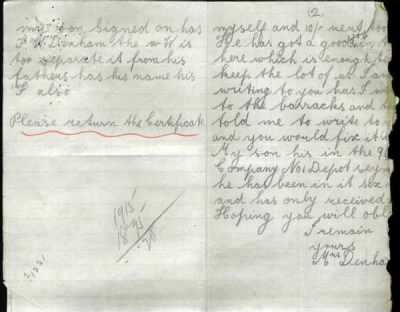 my son signed on has
F W Denham the W is
too separate it from his
fathers has his name his
F also
Please return the Certificate
1915
1895
20
(2
myself and 10/- went
He has got a good
here which is enough
keep the lot of us I am
writing to you has I
to the barracks and
told me to write to
and you would fix it
My son his in the
Company No1 Depot
he had been in it six
and has only received
Hoping you will
I remain
yours
Mrs Denham